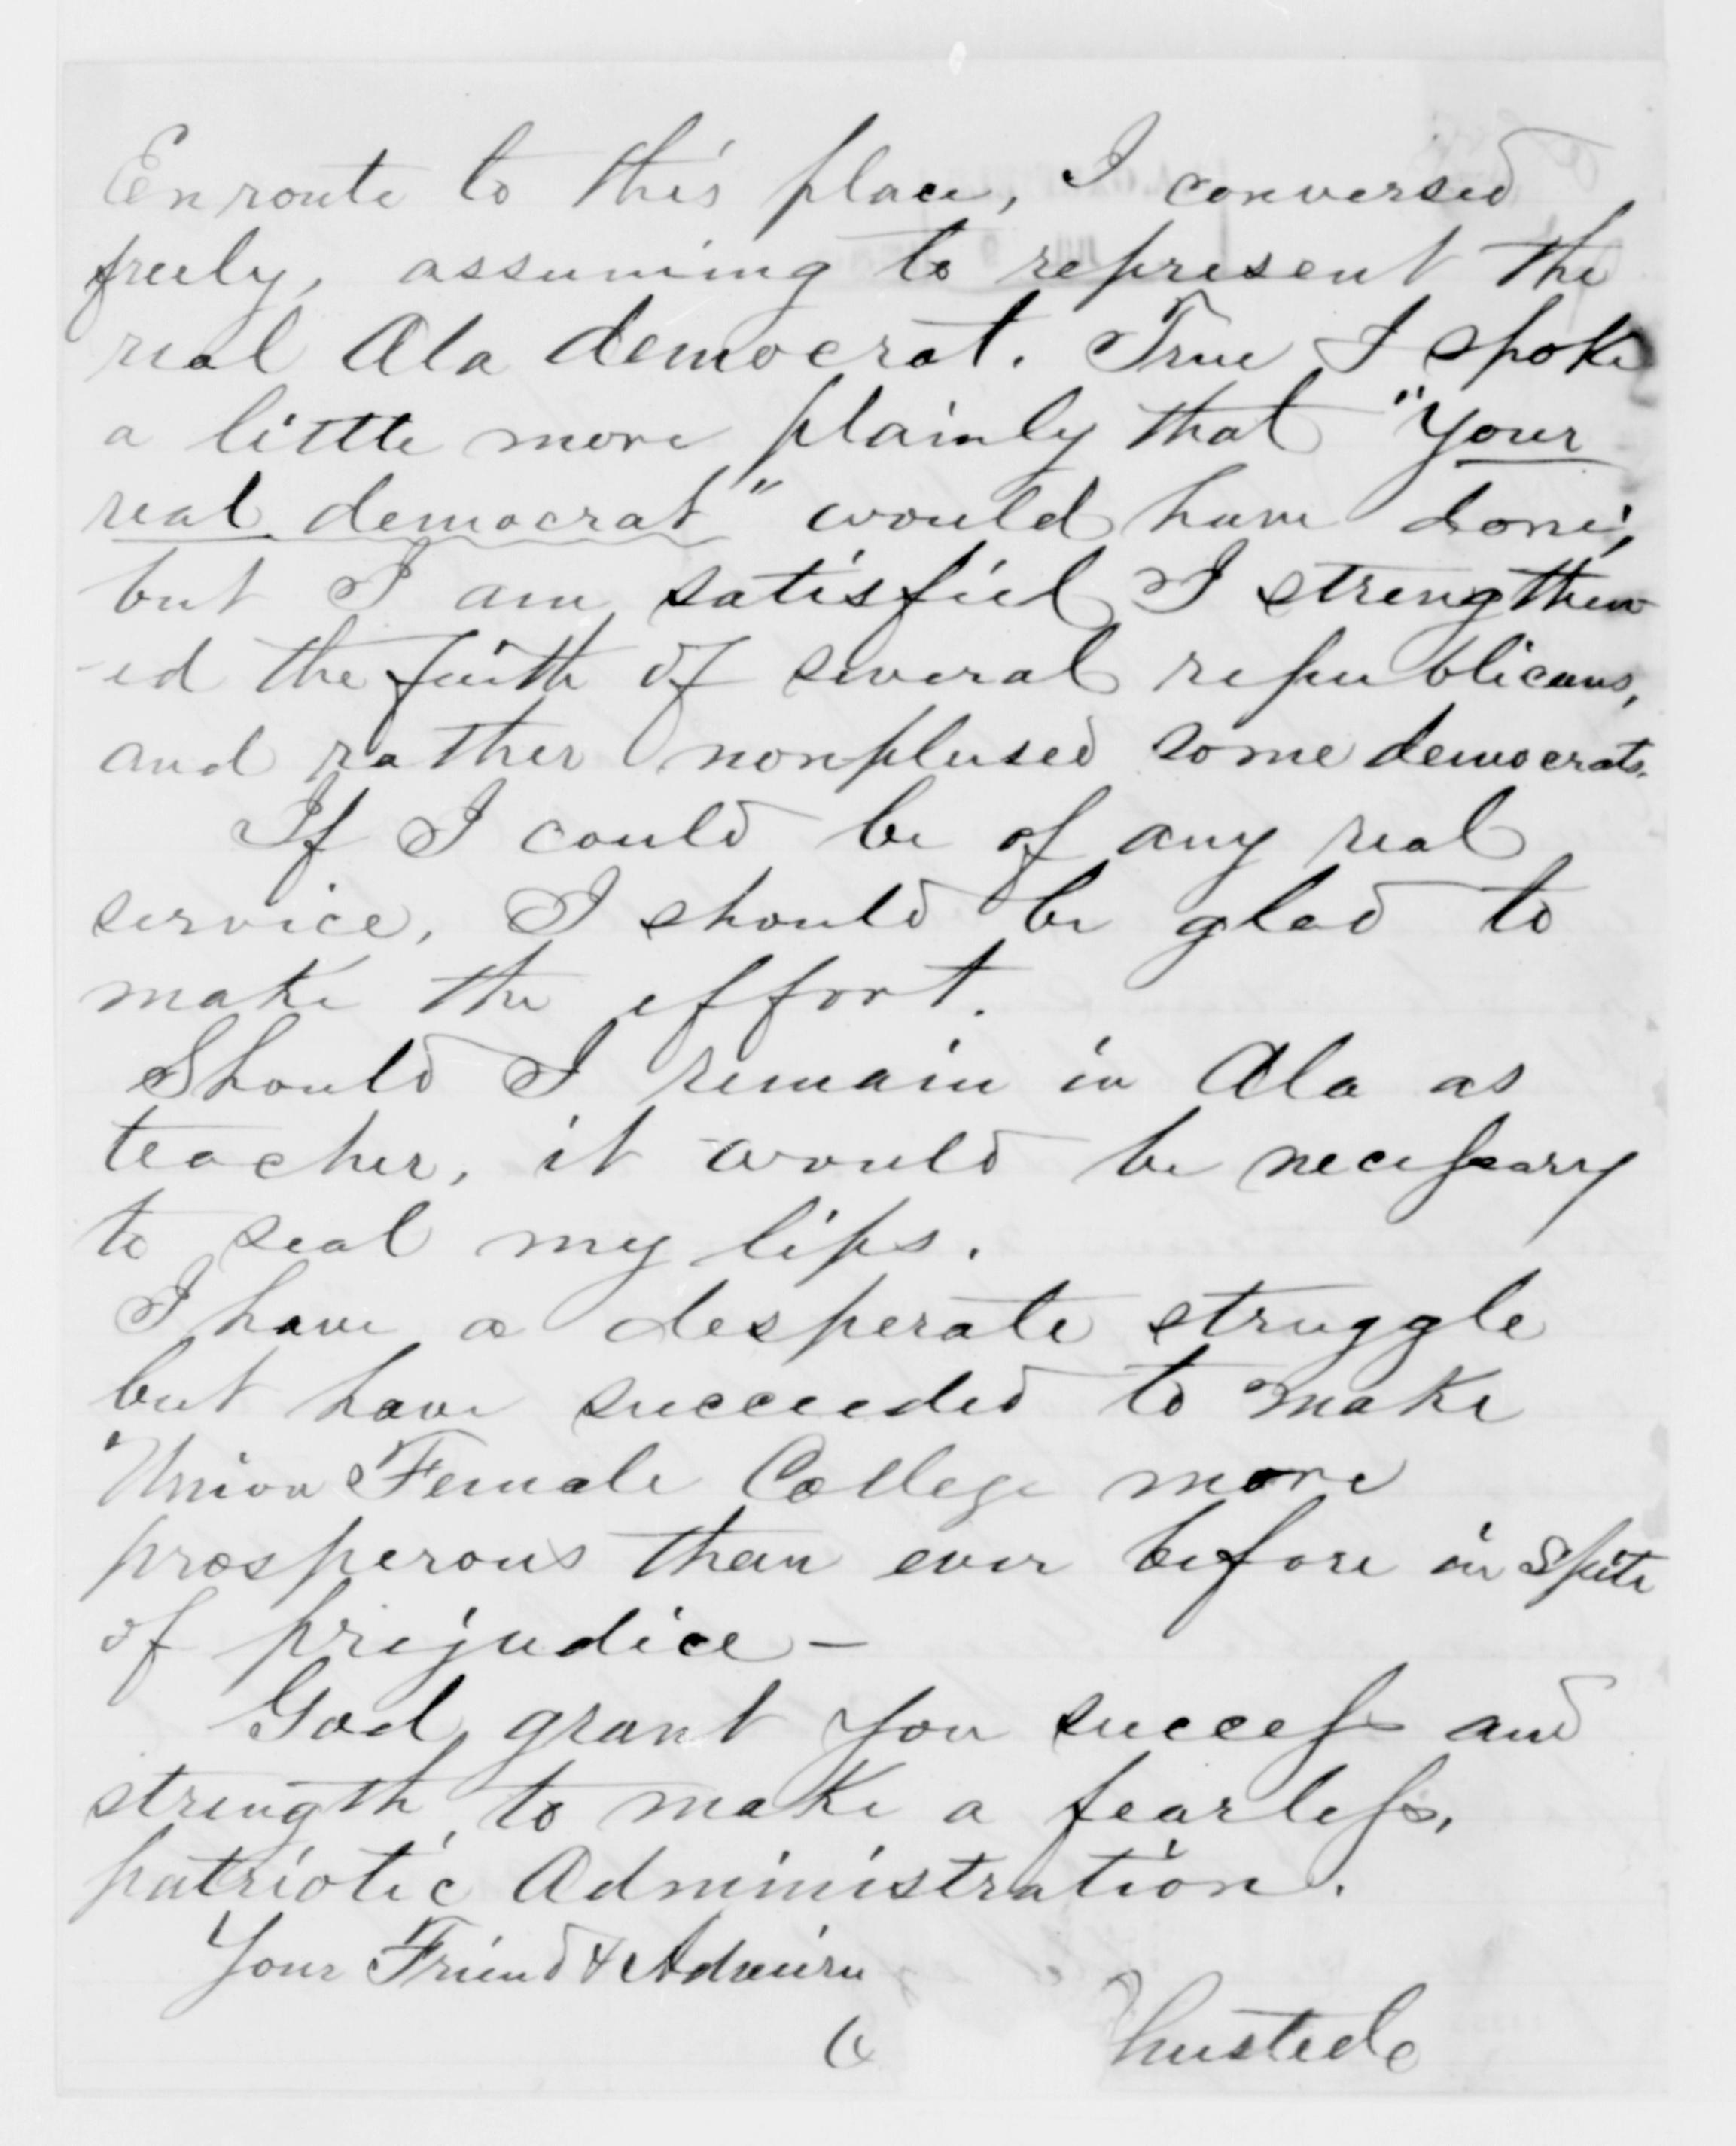 Enroute to this place, I conversed
freely, assuming to represent the
real Ala democrat. True I spoke
a little more plainly that "Your
real democrat" would have done;
but I am satisfied I strengthen-
-ed the faith of several republicans,
and rather nonplused some democrats.
If I could be of any real
service, I should be glad to
make the effort.
Should I remain in Ala as
teacher, it would be necessary
to seal my lips.
I have a desperate struggle
but have succeeded to make
Union Female College more
prosperous than ever before in spite
of prejudice—
God grant you success and
strength, to make a fearless,
patriotic Administration.
Your Friend & Admirer